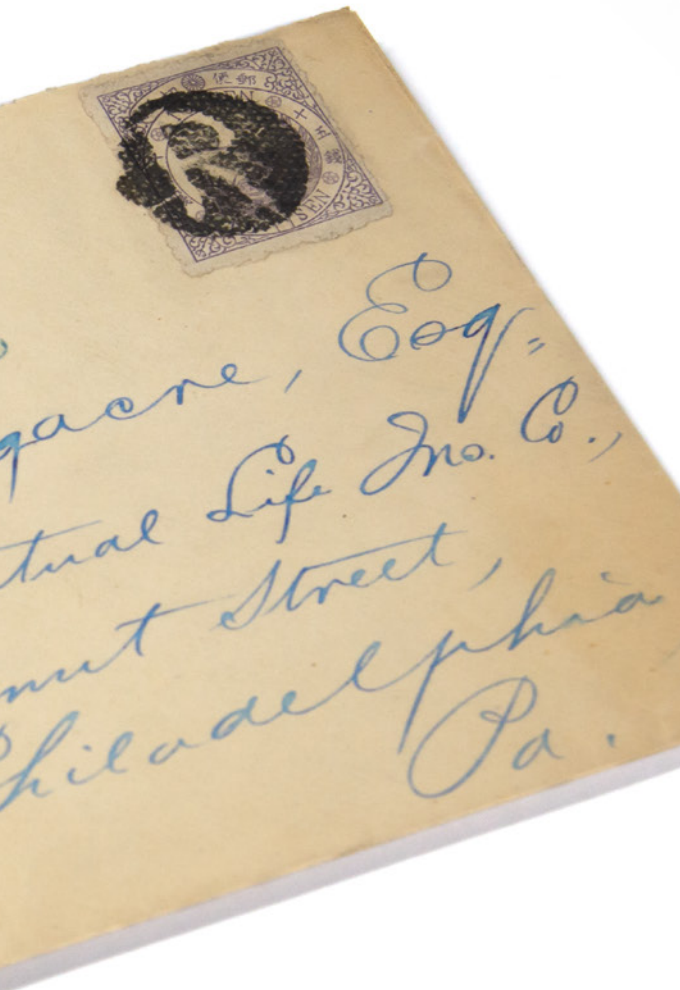 郵便
SEN
gacre, Esq.
tual Life Ins. Co.,
nut Street,
Philadelphia
Pa.